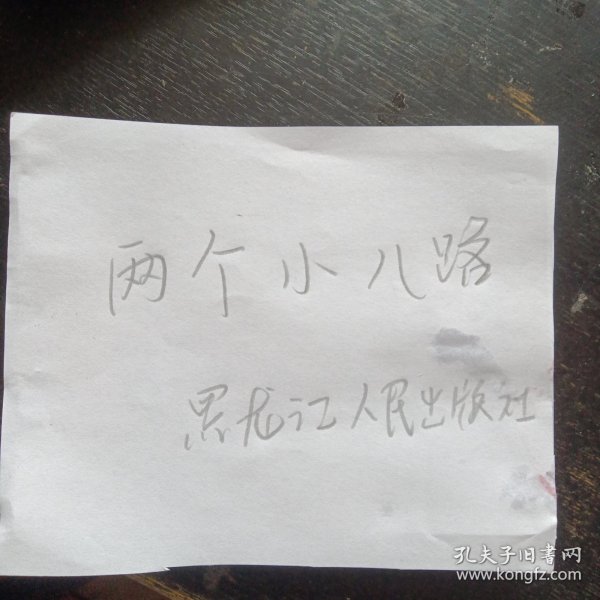 两个小八路
黑龙江人民出版社
孔夫子旧书网
www.kongfz.com